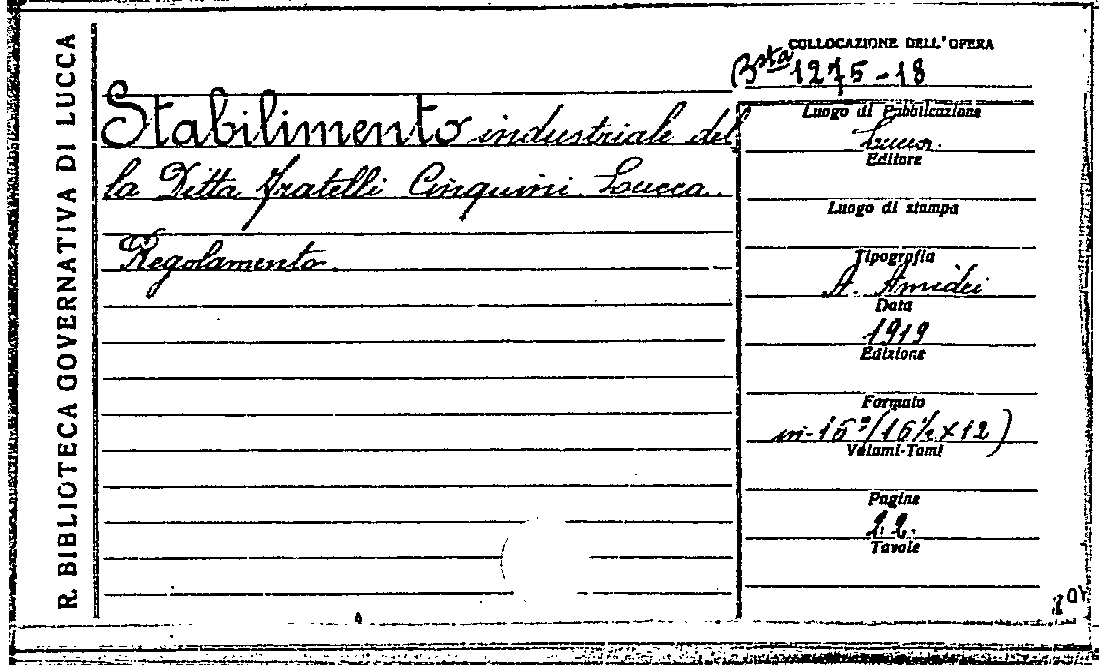 R. BIBLIOTECA GOVERNATIVA DI LUCCA
COLLOCAZIONE DELL'OPERA
Bsta 1275-18
Stabilimento industriale del
la Ditta Fratelli Cinquini. Lucca.
Regolamento.
Luogo di Pubblicazione
Lucca.
Editore
Luogo di stampa
Tipografia
A. Amidei
Data
1919
Edizione
Formato
in-16º (16½ x 12)
Volumi-Tomi
Pagine
22.
Tavole